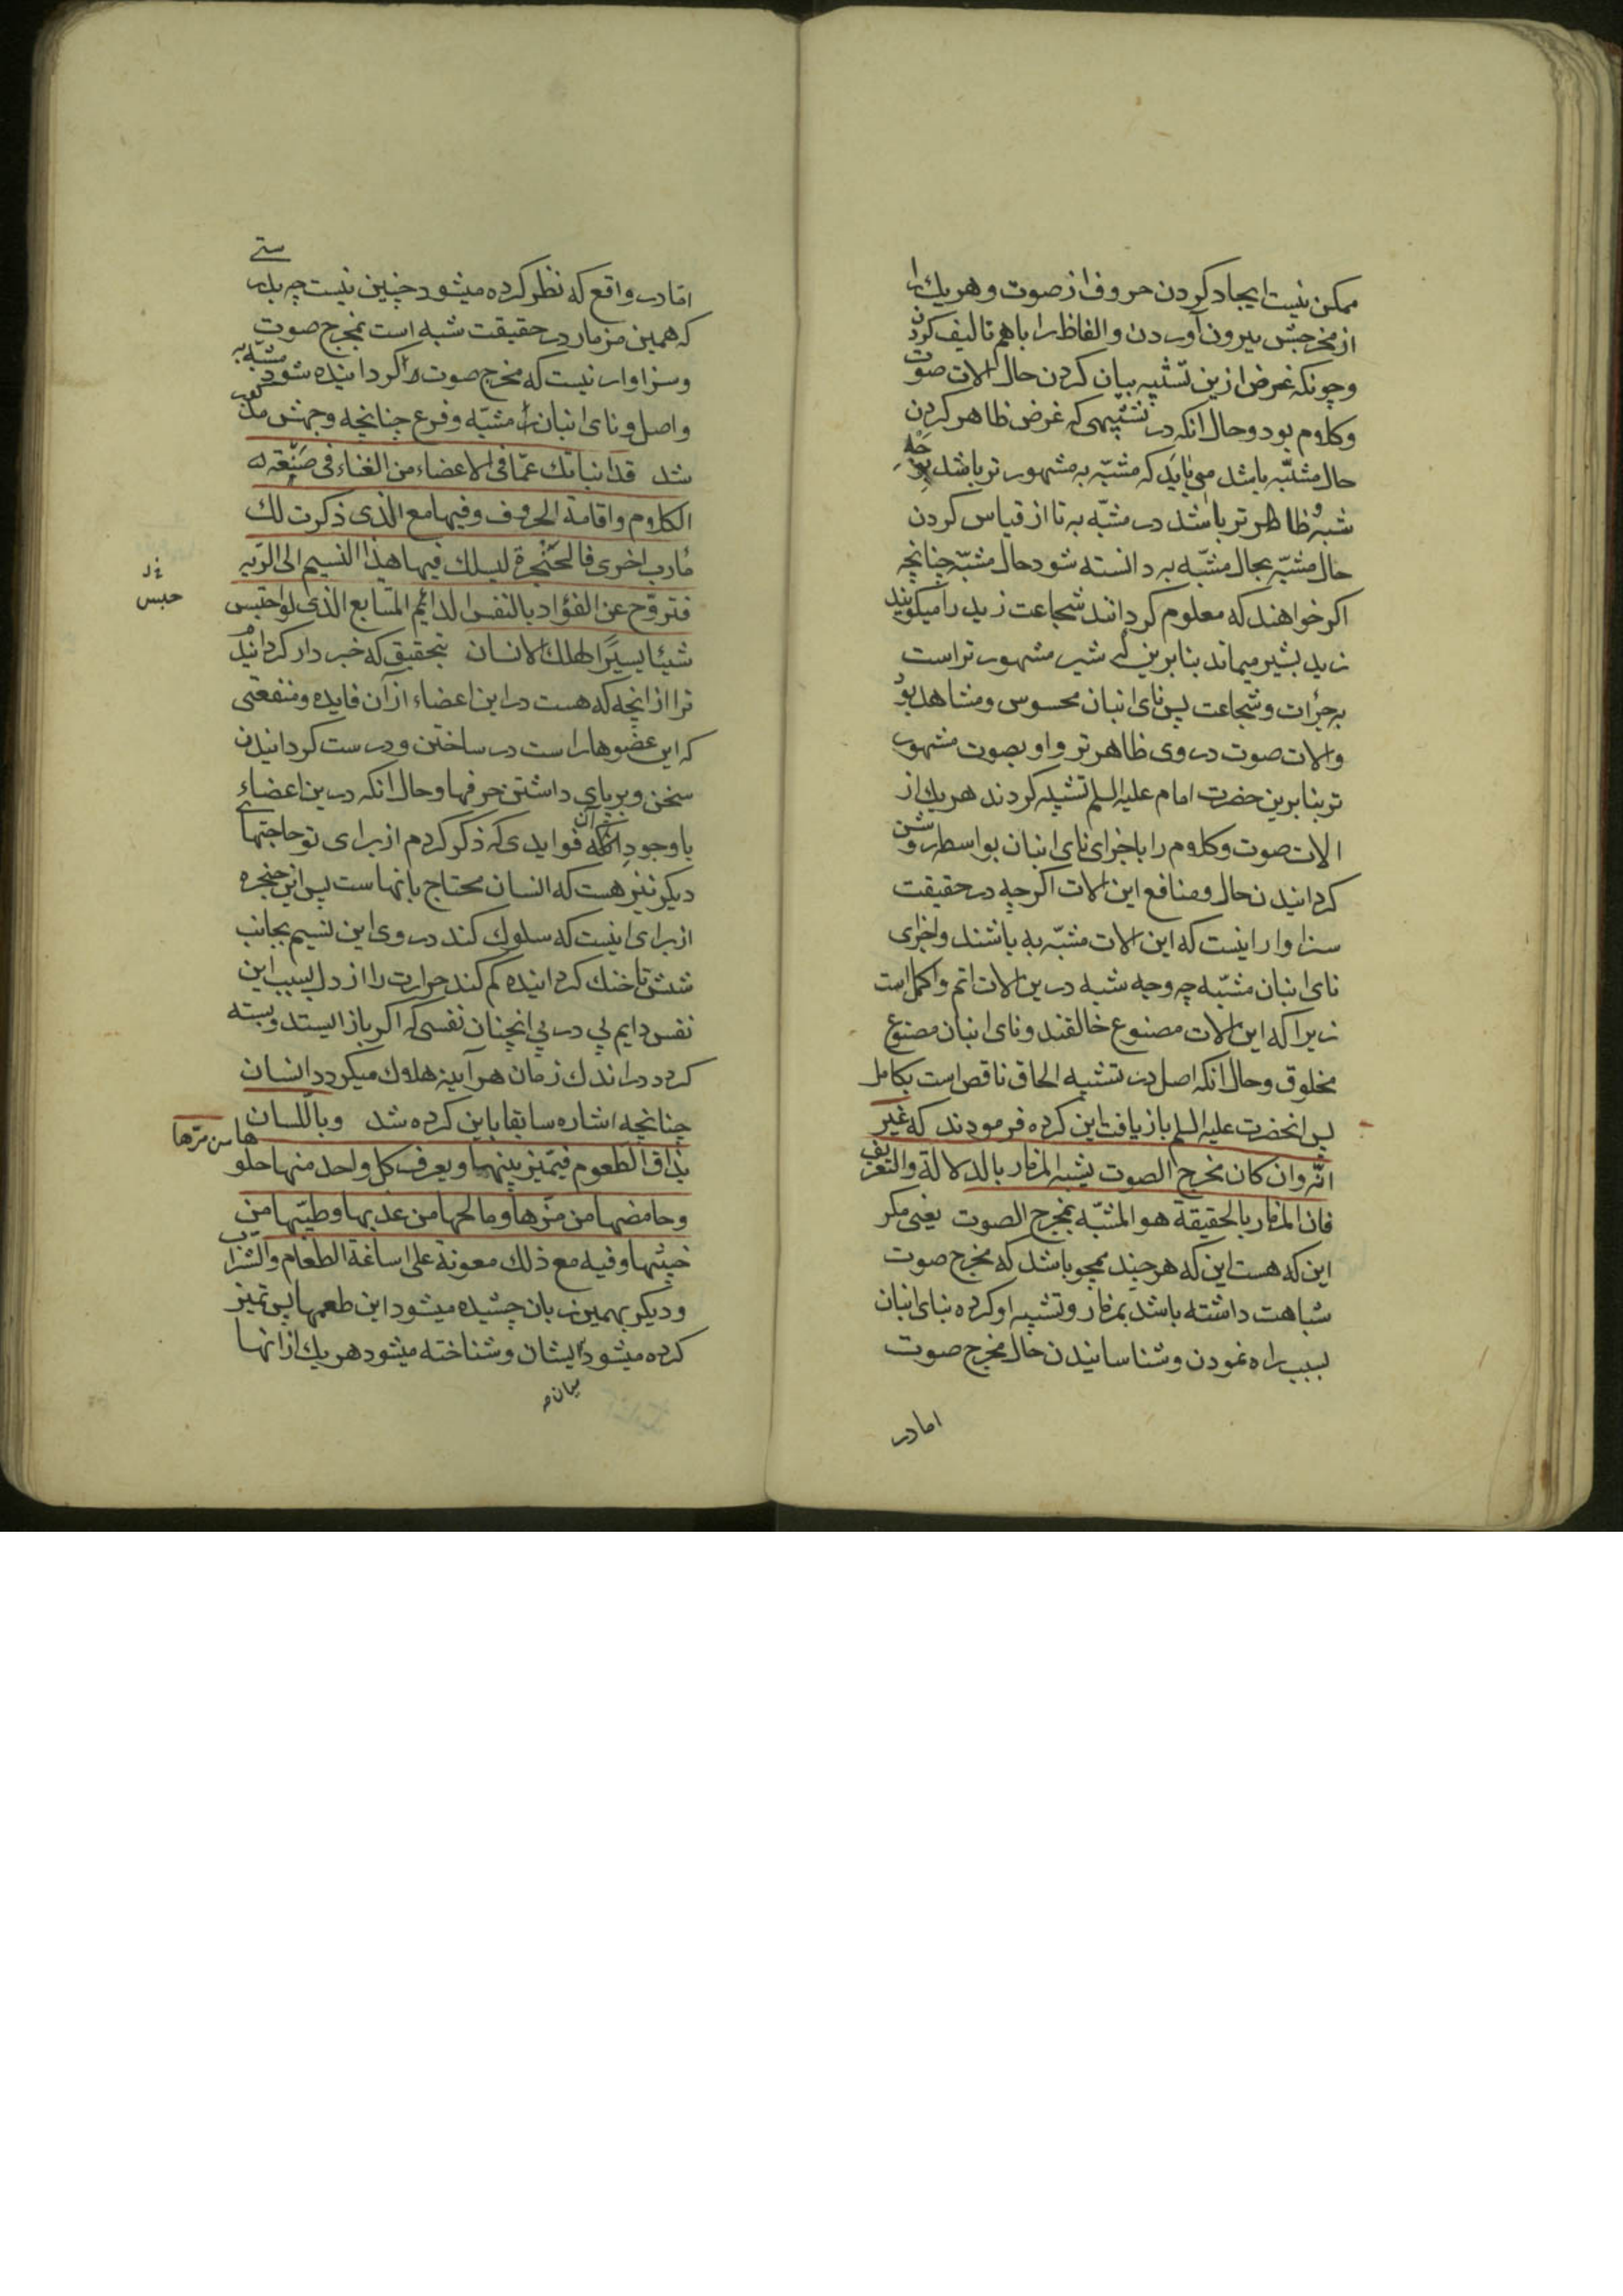 ممکن نیست ایجاد کردن حروف از صوت و هریک را
از مخرجش بیرون آوردن و الفاظ را باهم تالیف کردن
و چونکه غرض ازین تشبیه بیان کردن حال الات صوت
و کلام بود و حال انکه در تشبیهی که غرض ظاهر کردن
حال مشبّه باشد می باید که مشبّه به مشهور تر باشد
شبه ظاهر تر باشد در مشبّه به تا از قیاس کردن
حال مشبّه بحال مشبّه به دانسته شود حال مشبّه چنانچه
اکر خواهند که معلوم کردانند شجاعت زید را میکویند
زید بشیر میماند بنابرین که شیر مشهور تر است
به جرات و شجاعت پس نای انبان محسوس و مشاهد بود
و الات صوت در وی ظاهر تر و او بصوت مشهور
تر بنابرین حضرت امام علیه السلم تشبیه کردند هریک از
الات صوت و کلام را باجزای نای انبان بواسطه روشن
کردانیدن حال و منافع این الات اکرچه در حقیقت
سزاوار اینست که این الات مشبّه به باشند و اجزای
نای انبان مشبّه چه وجه شبه درین الات اتم و اکمل است
زیرا که این الات مصنوع خالقند و نای انبان مصنوع
مخلوق و حال انکه اصل در تشبیه الحاق ناقص است بکامل
پس انحضرت علیه السلم باز یافت این کرده فرمودند که غیر
انّه وان کان مخرج الصوت یشبه المزمار بالدلالة والتعریف
فان المزمار بالحقیقة هو المشبّه بمخرج الصوت یعنی مکر
این که هست این که هرچند همچو باشد که مخرج صوت
شباهت داشته باشد بمزمار و تشبیه او کرده بنای انبان
بسبب راه نمودن و شناسانیدن حال مخرج صوت
اما در
امّا در واقع که نظر کرده میشود چنین نیست چه بدر
ستے
که همین مزمار در حقیقت شبه است بمخرج صوت
و سزاوار نیست که مخرج صوت را کردانیده شود مشبّه به
و اصل و نای انبان را مشبّه و فرع چنانچه وجهش
شد قد انباتک عمّا فی الاعضاء من الغناء فی صنعة
الکلام واقامة الحروف وفیها مع الذی ذکرت لک
مارب اخری فالحنجرة لیسلک فیها هذا النسیم الی الریه
فتروح عن الفؤاد بالنفس الدائم المتابع الذی لو احتبس
حبس
شیئا یسیرا لهلک الانسان بتحقیق که خبردار کردانید
ترا از انچه که هست در این اعضاء از آن فایده و منفعتی
که این عضوها راست در ساختن و درست کردانیدن
سخن و برپای داشتن حرفها و حال انکه درین اعضاء
با وجود آن فوایدی که ذکر کردم از برای تو حاجتهای
دیکر نیز هست که انسان محتاج بانهاست پس این حنجره
از برای اینست که سلوک کند در وی این نسیم بجانب
شش تا خنک کردانیده کم کند حرارت را از دل بسبب این
نفس دایم پی در پی انچنان نفسی که اکر باز ایستد و بسته
کردد در اندک زمان هرآینه هلاک میکردد انسان
چنانچه اشاره سابقا باین کرده شد وباللسان
یذاق الطعوم فیتمیز بینها ویعرف کل واحد منها حلو
ها من مرّها
وحامضها من مزّها ومالحها من عذبها وطیّبها من
خبیثها وفیه مع ذلک معونة علی اساغة الطعام والشراب
و دیکر بهمین زبان چشیده میشود این طعمها پس تمیز
کرده میشود ایشان و شناخته میشود هریک از انها
میان